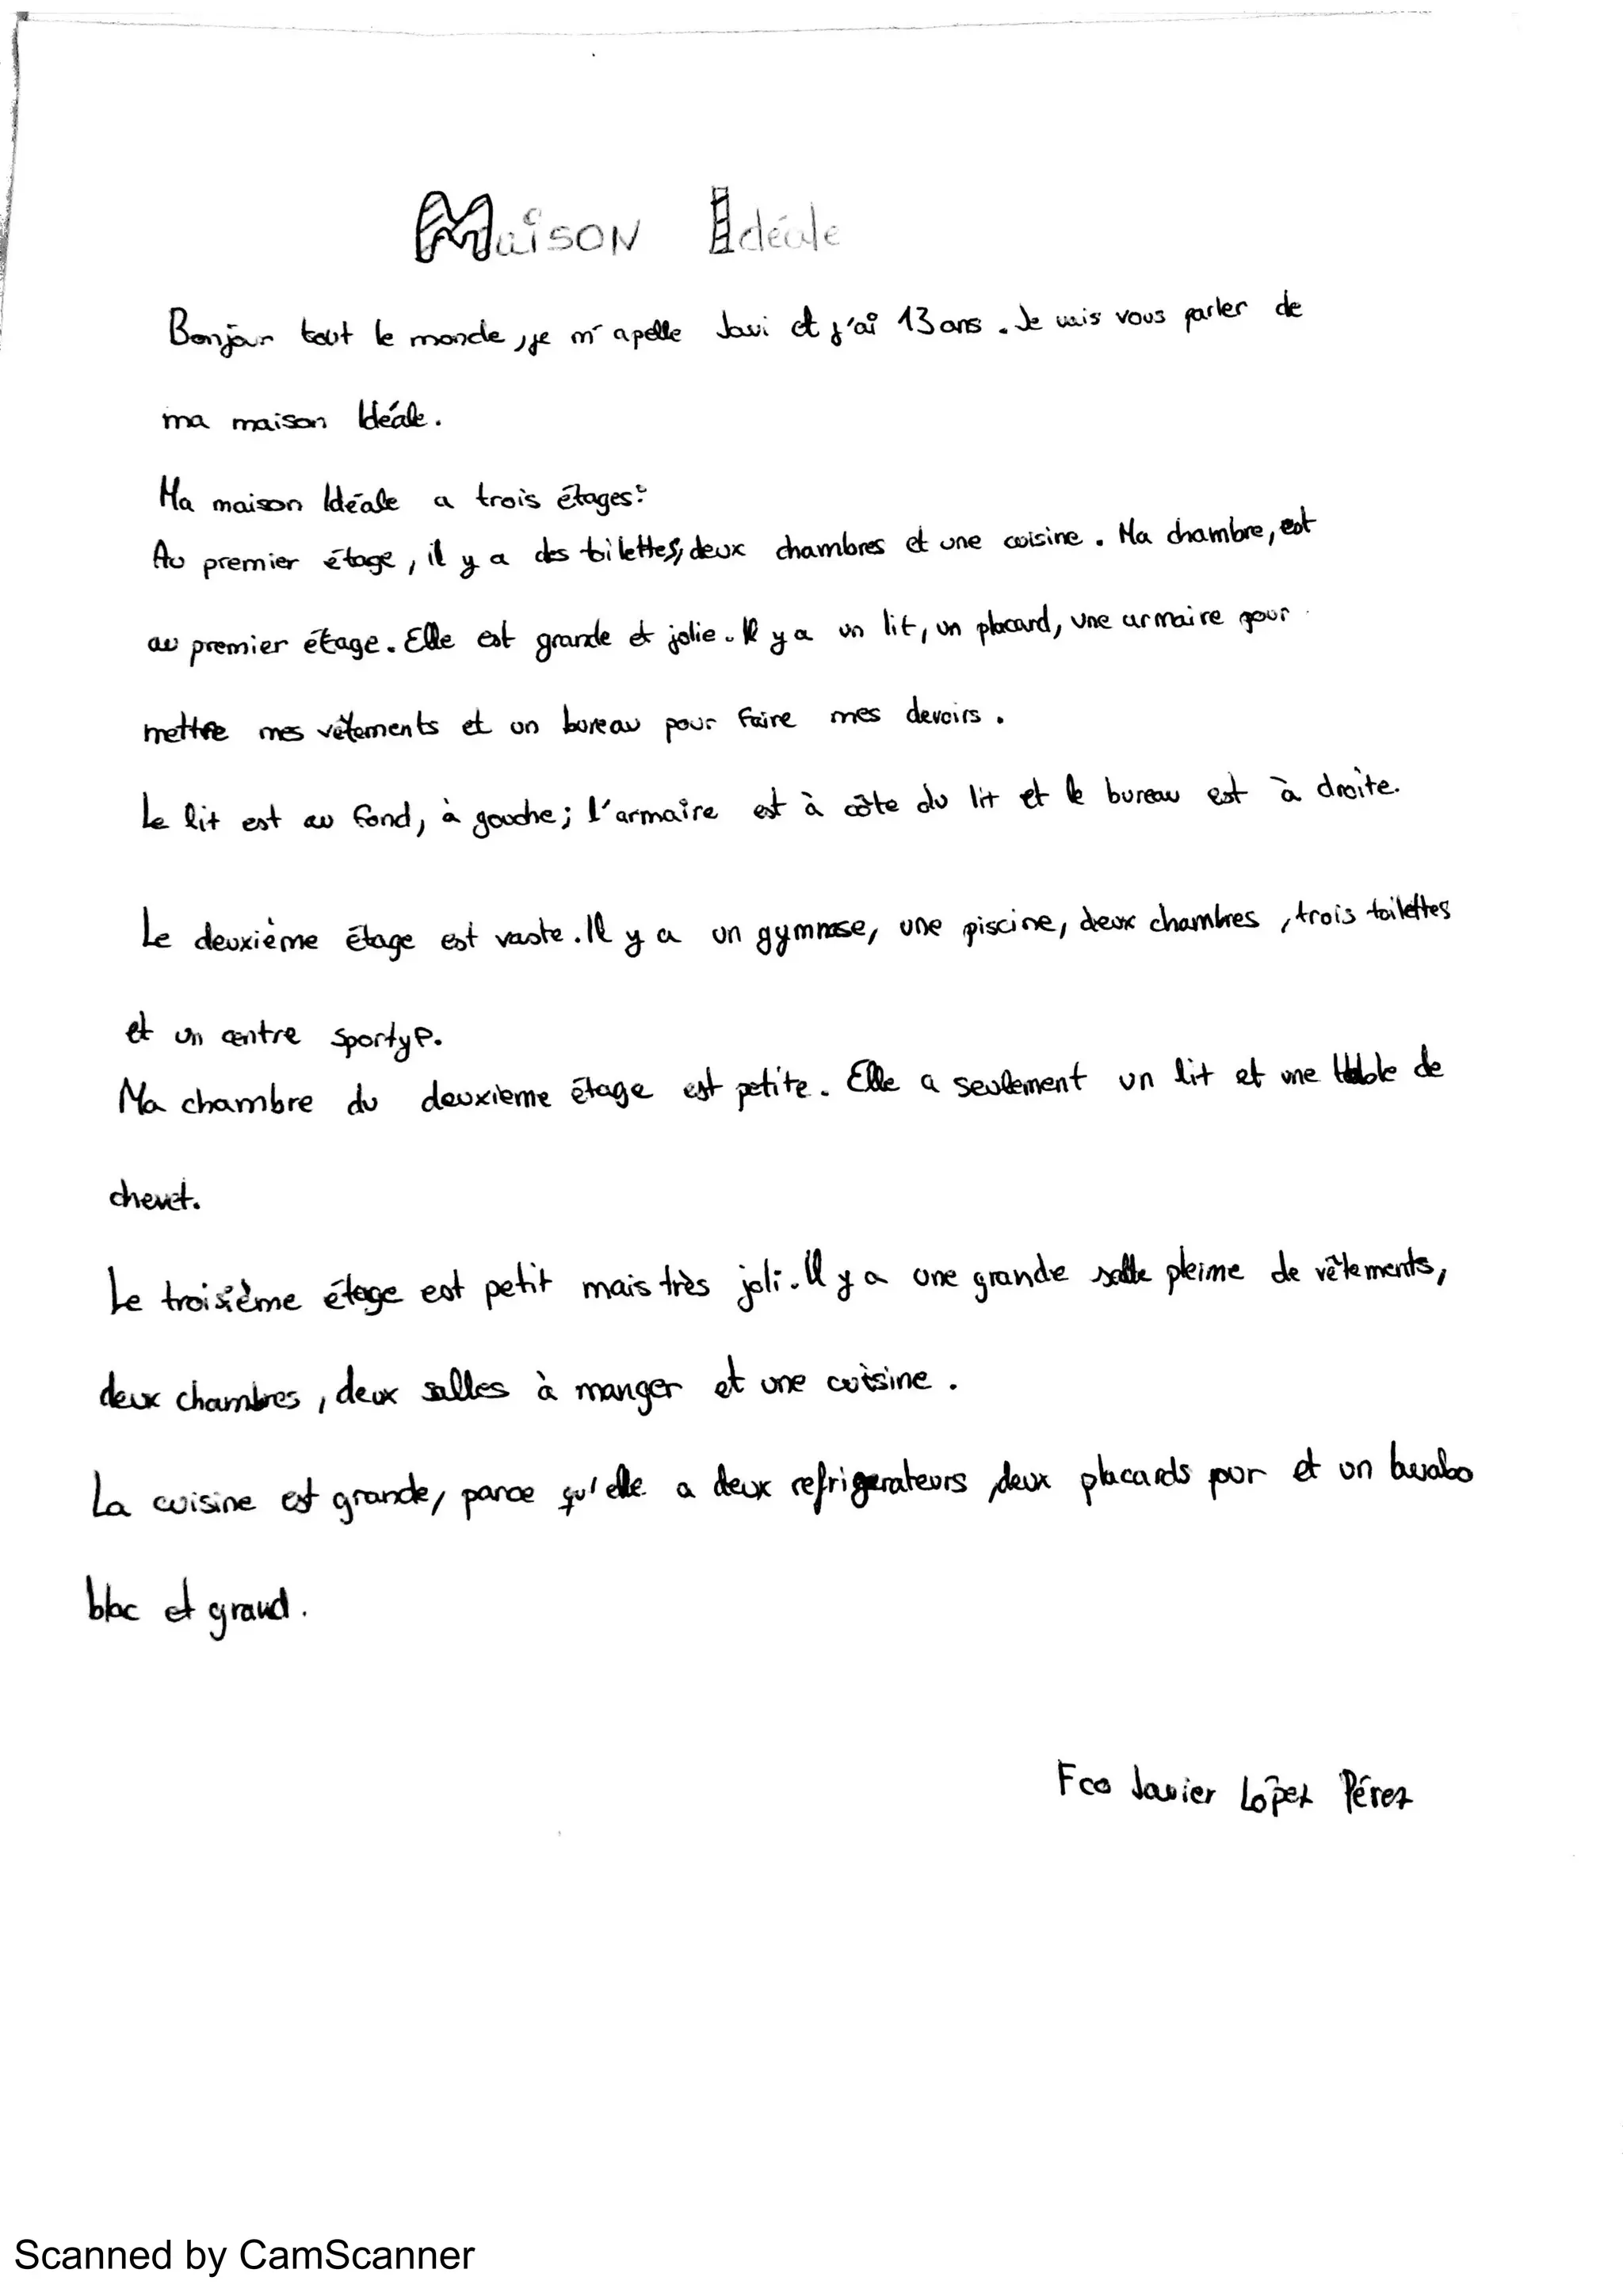 Maison Idéale
Bonjour tout le monde, je m'apelle Javi et j'ai 13 ans. Je vais vous parler de
ma maison Idéale.
Ma maison Idéale a trois étages:
Au premier étage, il y a des toilettes, deux chambres et une cuisine. Ma chambre, est
au premier étage. Elle est grande et jolie. Il y a un lit, un placard, une armaire pour
mettre mes vêtements et un bureau pour faire mes devoirs.
Le lit est au fond, à gauche; l'armaire est à côte du lit et le bureau est à droite.
Le deuxième étage est vaste. Il y a un gymnase, une piscine, deux chambres, trois toilettes
et un centre
Ma chambre du deuxième étage est petite. Elle a seulement un lit et une table de
chevet.
Le troisième étage est petit mais très joli. Il y a une grande salle pleine de vêtements,
deux chambres, deux salles à manger et une cuisine.
La cuisine est grande, parce qu'elle a deux refrigerateurs, deux placards pour et un
et grand.
Fco Javier López Pérez
Scanned by CamScanner